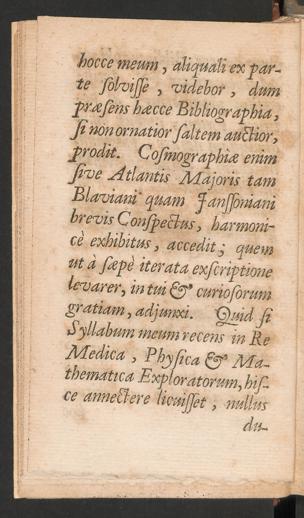 hocce meum, aliquali ex par-
te solvisse, videbor, dum
præsens hæcce Bibliographia,
si non ornatior saltem auctior,
prodit. Cosmographiæ enim
sive Atlantis Majoris tam
Blaviani quam Janssoniani
brevis Conspectus, harmoni-
cè exhibitus, accedit; quem
ut à sæpè iterata exscriptione
levarer, in tui & curiosorum
gratiam, adjunxi. Quid si
Syllabum meum recens in Re
Medica, Physica & Ma-
thematica Exploratorum, his-
ce annectere licuisset, nullus
du-